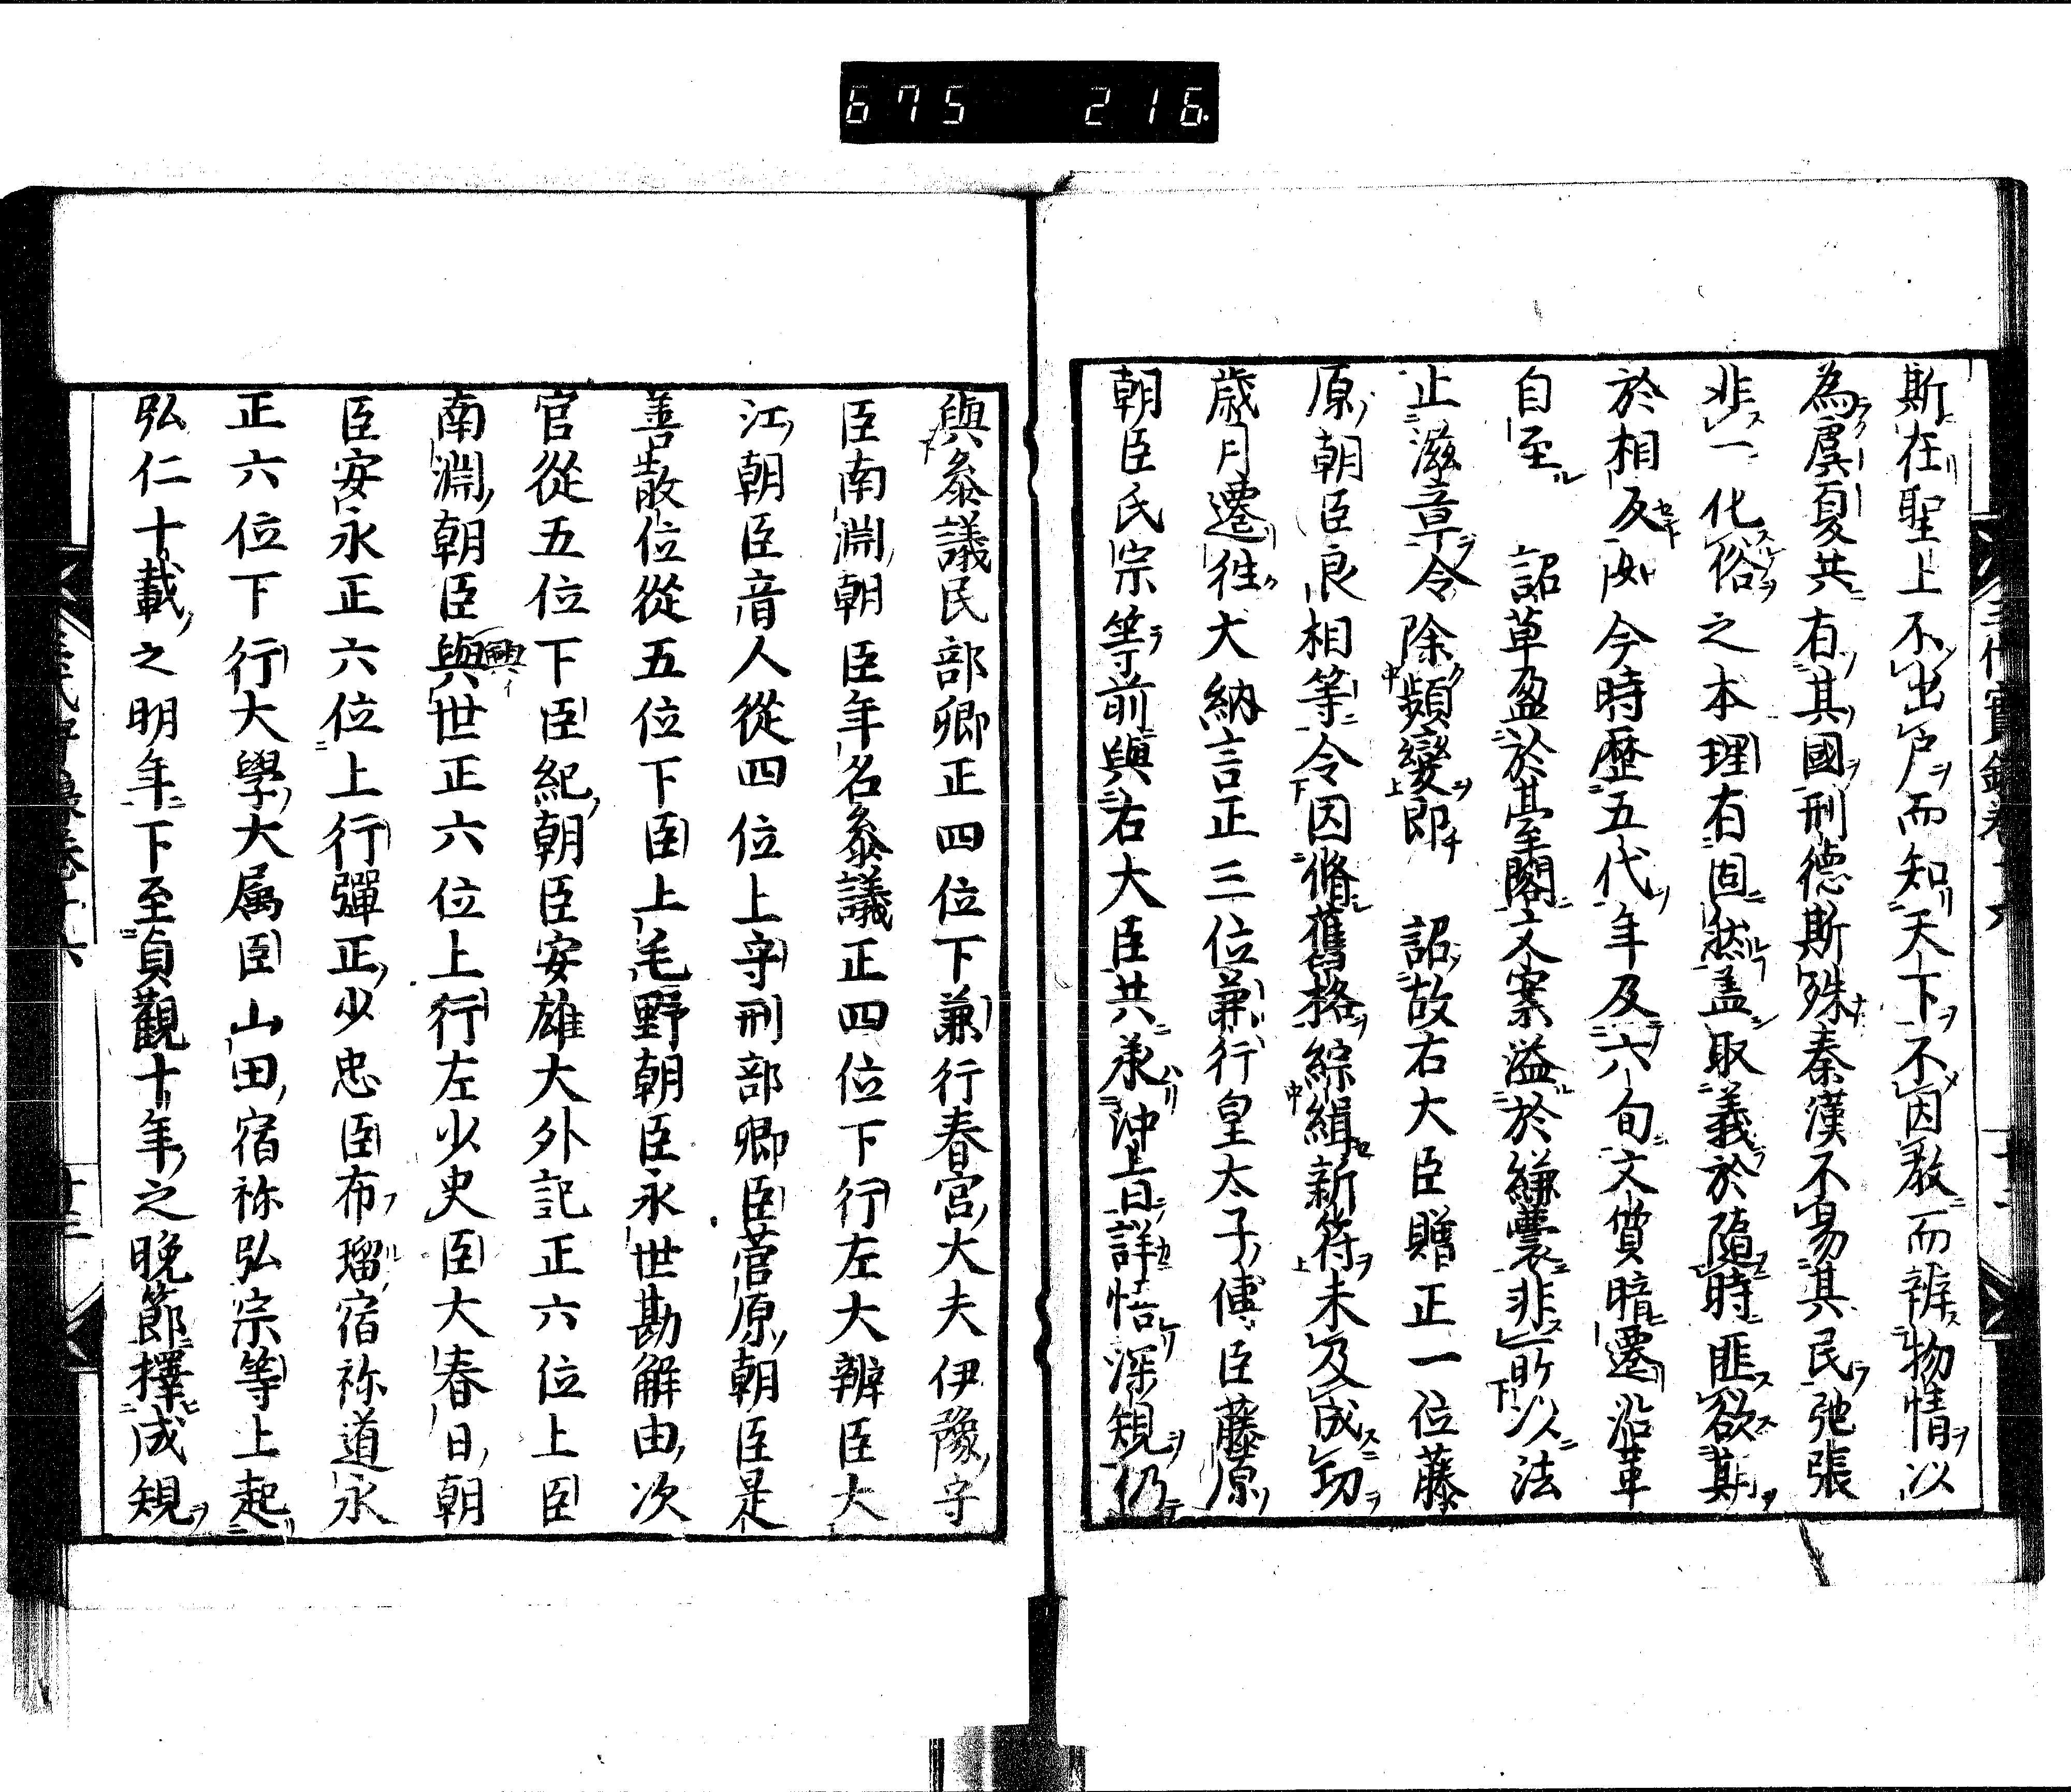 675 216
斯在聖上不出戸而知天下不因教而辨物情以
為虞夏共有其國刑德斯殊秦漢不易其民弛張
非一化俗之本理有固然盖取義於隨時匪欲期
於相反如今時歴五代年及六旬文質暗遷沿革
自至　詔草盈於臺閣文案溢於縑囊非所以法
止滋章令除頻變即　詔故右大臣贈正一位藤
原朝臣良相等令因脩舊格綜緝新符未及成功
歳月遷徃大納言正三位兼行皇太子傅臣藤原
朝臣氏宗等前與右大臣共承沖旨詳悟深規仍
與叅議民部卿正四位下兼行春宮大夫伊豫守
臣南淵朝臣年名叅議正四位下行左大辨臣大
江朝臣音人從四位上守刑部卿臣菅原朝臣是
善散位從五位下臣上毛野朝臣永世勘解由次
官從五位下臣紀朝臣安雄大外記正六位上臣
南淵朝臣與世正六位上行左少史臣大春日朝
臣安永正六位上行彈正少忠臣布瑠宿祢道永
正六位下行大學大属臣山田宿祢弘宗等上起
弘仁十載之明年下至貞觀十年之晩節擇成規